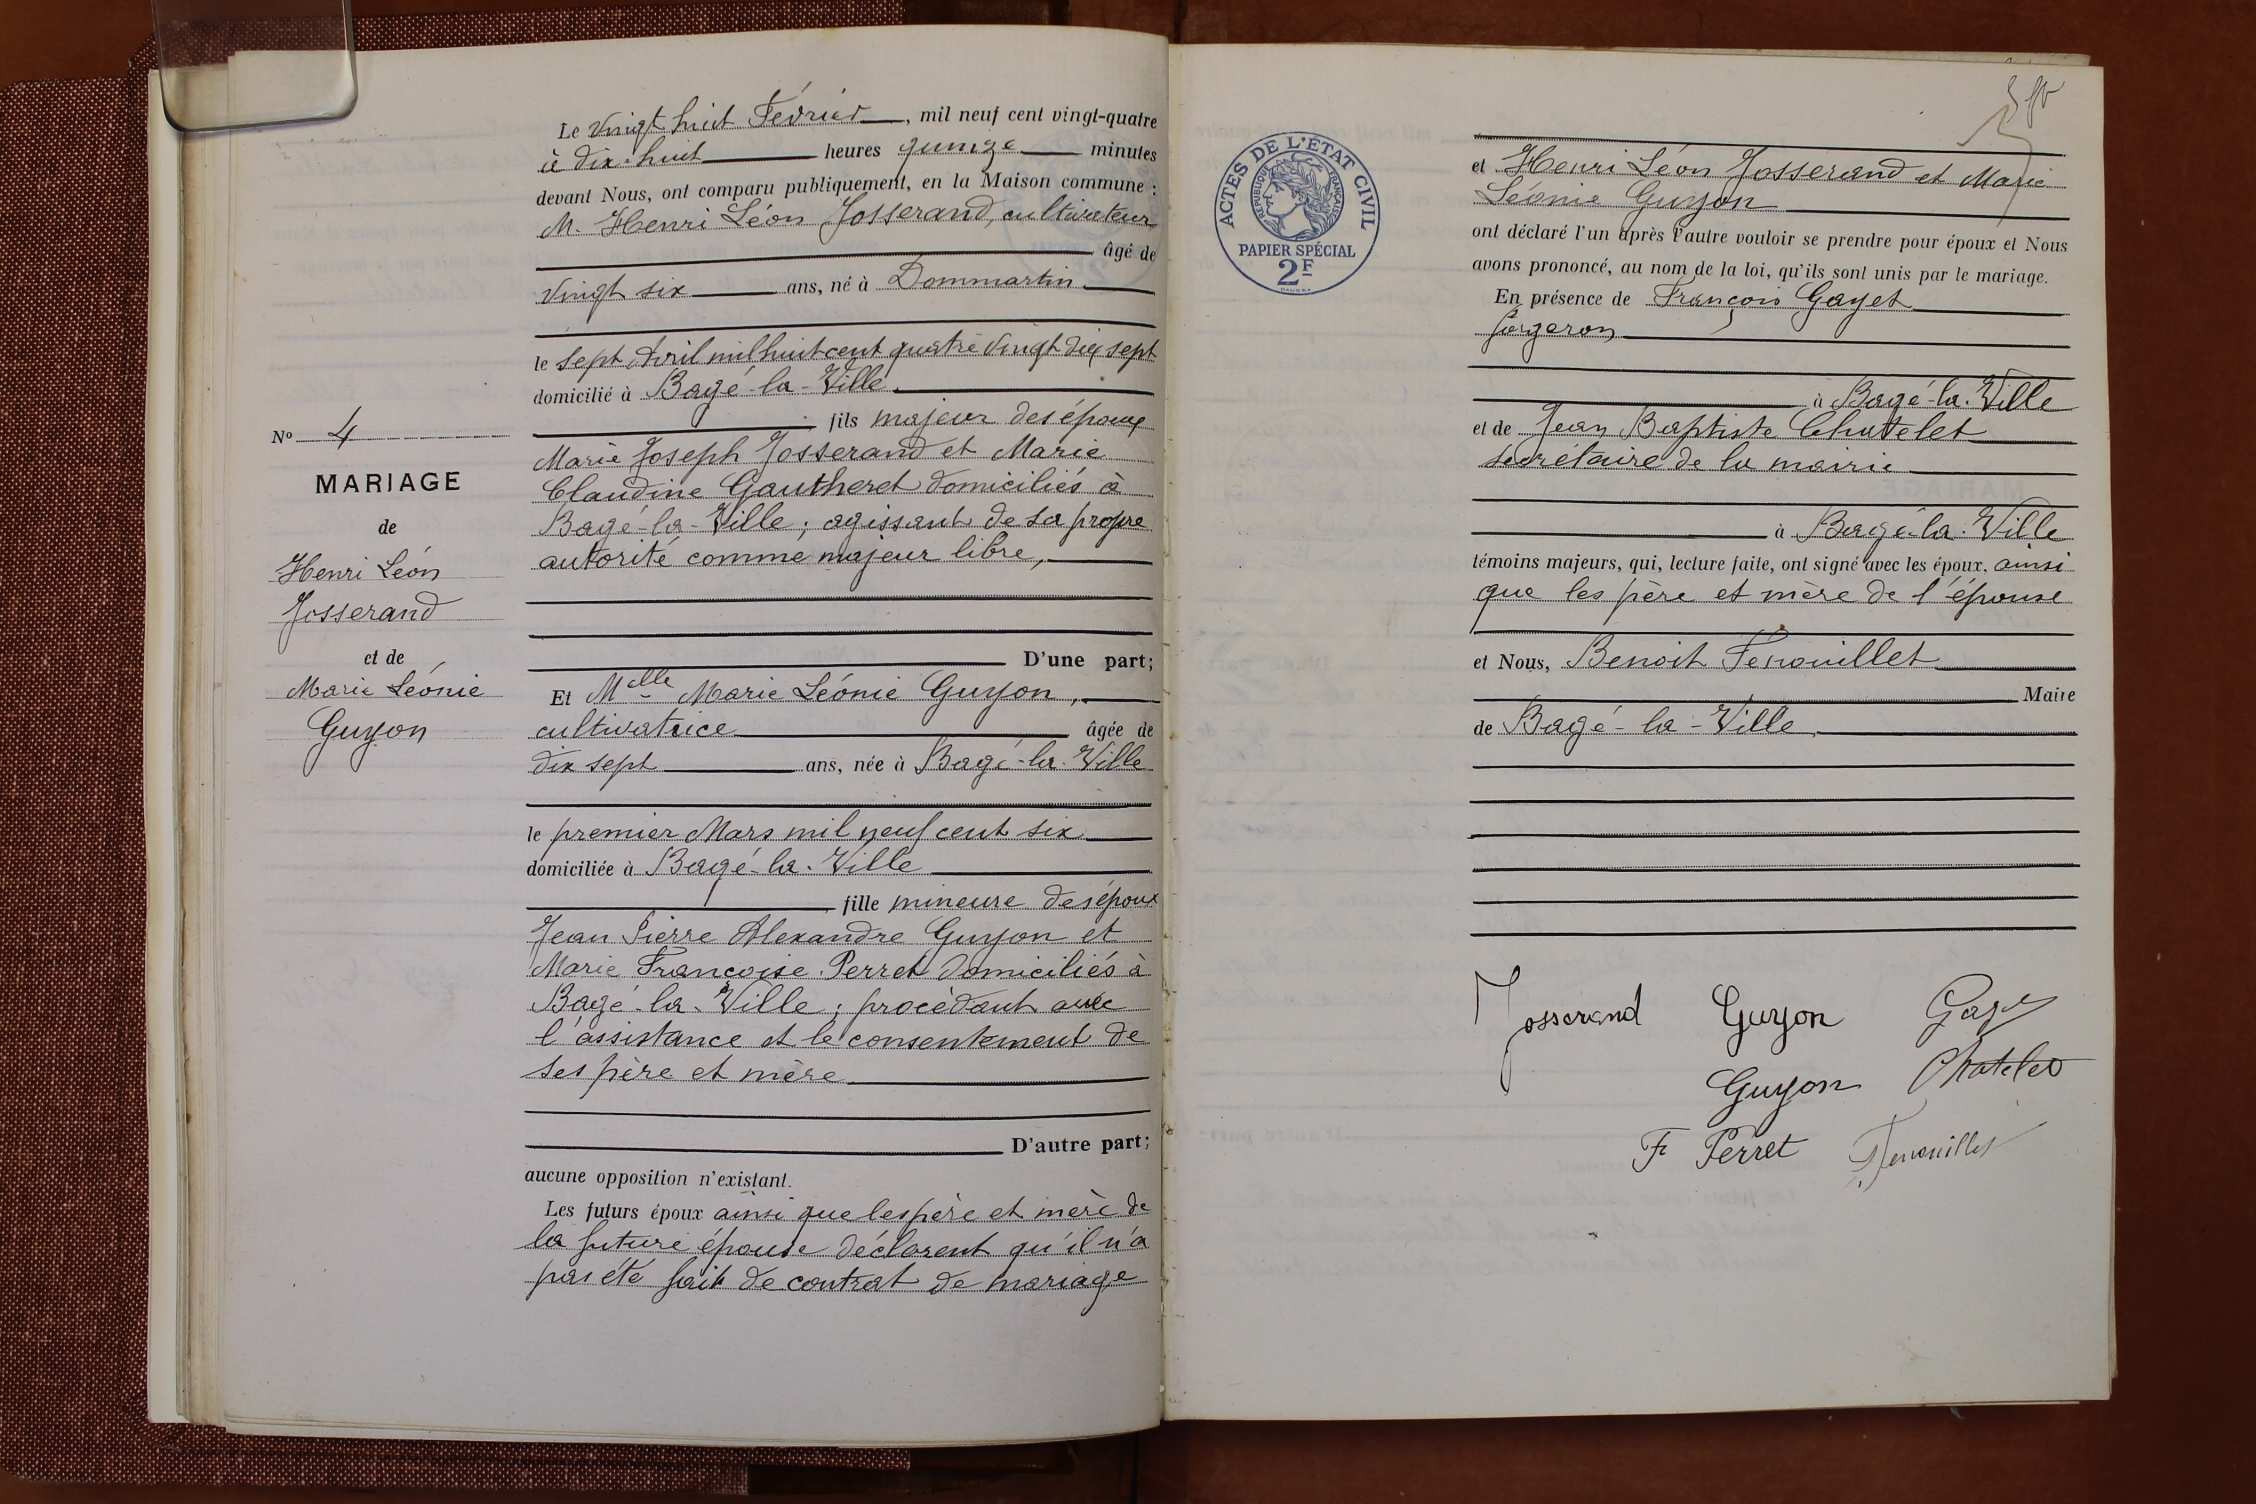 Le vingt huit Février, mil neuf cent vingt-quatre
à dix-huit heures quinze minutes
devant Nous, ont comparu publiquement, en la Maison commune :
M. Henri Léon Josserand, cultivateur
âgé de
vingt six ans, né à Dommartin
le sept Avril mil huit cent quatre vingt dix sept
domicilié à Bagé-la-Ville
fils majeur des époux
Marie Joseph Josserand et Marie
Claudine Gautheret domiciliés à
Bagé-la-Ville ; agissant de sa propre
autorité comme majeur libre,
D'une part;
Nº 4
MARIAGE
de
Henri Léon
Josserand
et de
Marie Léonie
Guyon
Et Melle Marie Léonie Guyon,
cultivatrice âgée de
dix sept ans, née à Bagé-la-Ville
le premier Mars mil neuf cent six
domiciliée à Bagé-la-Ville
fille mineure des époux
Jean Pierre Alexandre Guyon et
Marie Françoise Perret domiciliés à
Bagé-la-Ville ; procèdant avec
l'assistance et le consentement de
ses père et mère
D'autre part;
aucune opposition n'existant.
Les futurs époux ainsi que les père et mère de
la future épouse déclarent qu'il n'a
pas été fait de contrat de mariage
ACTES DE L'ÉTAT CIVIL
RÉPUBLIQUE FRANÇAISE
PAPIER SPÉCIAL
2F
et Henri Léon Josserand et Marie
Léonie Guyon
ont déclaré l'un après l'autre vouloir se prendre pour époux et Nous
avons prononcé, au nom de la loi, qu'ils sont unis par le mariage.
En présence de François Gayet
forgeron
à Bagé-la-Ville
et de Jean Baptiste Chatelet
secrétaire de la mairie
à Bagé-la-Ville
témoins majeurs, qui, lecture faite, ont signé avec les époux, ainsi
que les père et mère de l'épouse
et Nous, Benoit Fenouillet
Maire
de Bagé-la-Ville
Josserand Guyon Gayet
Guyon Chatelet
F Perret Fenouillet